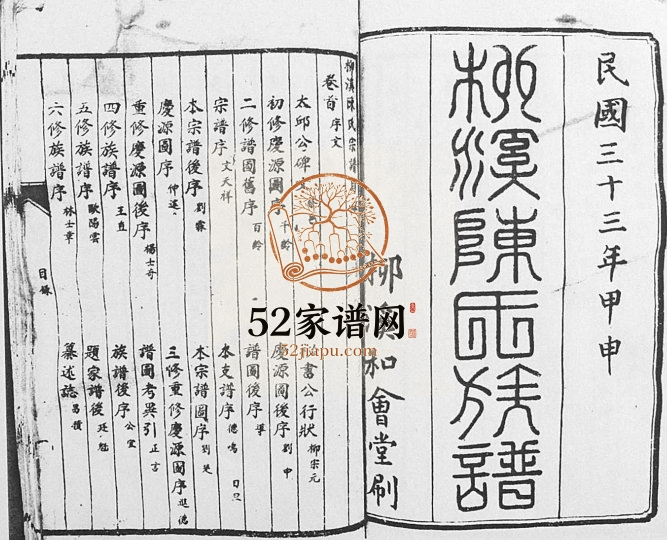 民國三十三年甲申
柳溪陳氏族譜
柳溪和會堂刷
柳溪陳氏宗譜
卷首 序文
太邱公碑
初修慶源圖序 千齡
二修譜圖舊序 百齡
宗譜序 文天祥
本宗譜後序 劉霖
慶源圖序 仲述
重修慶源圖後序 楊士奇
四修族譜序 王直
五修族譜序 歐陽雲
六修族譜序 林士章
書公行狀 柳宗元
慶源圖後序 劉申
譜圖後序
本支譜序 德鳴
本宗譜圖序
三修重修慶源圖序
譜圖考異引 正言
族譜後序 公宣
題家譜後
纂述誌
目錄
52家谱网
52jiapu.com